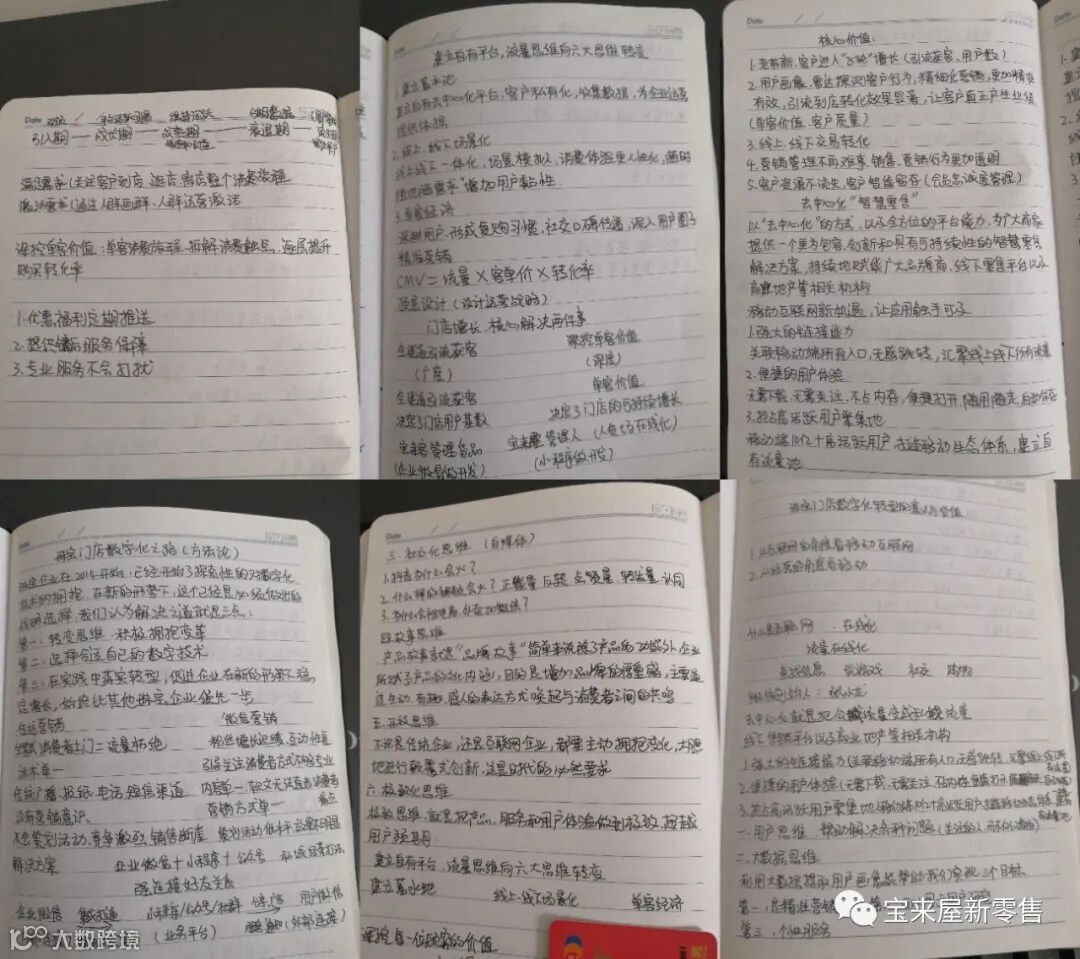 Date
引入期—成长期—成熟期—衰退期
满足需求(关注客户到店、逛店、离店整个消费旅程
激活需求(通过人群画群、人群运营激活
深挖单客价值:单客消费旅程,拆解消费触点,逐层提升
购买转化率
1.优惠,福利定期推送
2.提供售后服务保障
3.专业服务不会打扰
Date
建立自有平台,流量思维向六大思维转变
1.建立蓄水池
建立自有去中心化平台,客户私有化,收集数据,为企业运营
提供依据
2.线上,线下场景化
线上线下一体化,场景模拟人,消费体验更人性化,随时
随地随需求"增加用户黏性.
3.单客经济
深耕用户,形成复购习惯,社交口碑传递,深入用户圈子
精准营销
CMV=流量×客单价×转化率
顶层设计(设计运营战略)
门店增长,核心解决两件事
全渠道引流获客 深挖单客价值
(广度) (深度)
全渠道引流获客 单客价值
决定了门店用户基数 决定了门店的可持续增长
宝来客管理货品 宝来屋管理人(人货场在线化)
(企业微信做开发) (小程序做开发)
Date
核心价值:
1.老带新,客户进入"飞轮"增长(引流获客,用户数)
2.用户画像,雷达探测客户行为,精细化营销,更加精准
有效,引流到店转化效果显著,让客户真正产生业绩
(单客价值,客户质量)
3.线上,线下交易转化
4.营销管理不再难事,销售,营销行为更加透明
5.客户资源不流失,客户智能留存(会员忠诚度管理)
去中心化"智慧零售"
以"去中心化"的方式,以及全方位的平台能力,为广大商家
提供一个更为包容,创新和具有可持续性的智慧零售
解决方案,持续地赋能广大品牌商、线下零售平台以及
商业地产等相关机构
移动互联网新机遇,让应用触手可及
1.强大的链接能力
关联移动端所有入口,无感跳转,汇聚线上线下所有流量
2.便捷的用户体验
无需下载,无需关注,不占内存,便捷打开,随用随走,自动保存
3.抢占高活跃用户聚集地
移动端10亿+高活跃用户,走进移动生态体系,建立自
有流量池
Date
珠宝门店数字化之路(方法论)
珠宝企业在2014开始,已经开始了探索性的对数字化
技术的拥抱,在新的形势下,这个已经是必须做出的
战略选择,我们认为解决之道就是三点:
第一:转变思维,积极拥抱变革
第二:选择合适自己的数字技术
第三:在实践中落实转型,促进企业在新的形势下稳
定增长,始终比其他珠宝企业领先一步
传统营销 微信营销
消费者上门=流量枯绝 粉丝增长迟缓,互动性差
话术单一 引导关注消费者方式不够专业
传统广播,报纸,电话,短信渠道 内容单一,缺失无法直击消费者
没有营销意识. 营销方式单一 痛点
不会策划活动,竞争激烈,销售断崖 策划活动低手,效果不明显
解决方案 企业微信+小程序+公众号 私域经营打法
强连接好友关系
企业微信 小程序/公众号/社群 用户微信
(业务平台) (外部连接)
Date
三.社会化思维(自媒体)
1.抖音为什么会火?
2.什么样的视频会火?正能量,反转,点赞量,转发量,认同
四.故事思维
产品故事就是"品牌故事"简单来说,除了产品的功能外,企业
所赋予产品的文化内涵,目的是增加品牌的厚重感,主要通
过生动,有趣,感人的表达方式唤起与消费者之间的共鸣
五.开放思维
不论是传统企业,还是互联网企业,都要主动拥抱变化,大胆
地进行颠覆式创新,这是时代的必然要求
六.极致化思维
极致思维,就是把产品,服务和用户体验做到极致,超越
用户预期
建立自有平台,流量思维向六大思维转变
建立蓄水池 线上,线下场景化 单客经济
深挖每一位顾客的价值
Date
珠宝门店数字化转型的意义与价值
1.从互联网的角度看移动互联网
2.从经营的角度看移动
什么是互联网,在线化
流量在线化
查找信息 玩游戏 社交 购物
微信创始人:张小龙
去中心化就是把公域流量变成私域流量
线下零售平台以及商业地产等相关机构
1.强大的链接能力(关联移动端所有入口,无感跳转,
2.便捷的用户体验(无需下载,无需关注,不占内存,便捷打开
3.抢占高活跃用户聚集地(移动端10亿+高活跃用户
一.用户思维 帮助解决各种问题
二.大数据思维
利用大数据提取用户画像能帮助我们实现三个目标
第一,是精准营销
第三,个性服务
宝来屋新零售
大数跨境